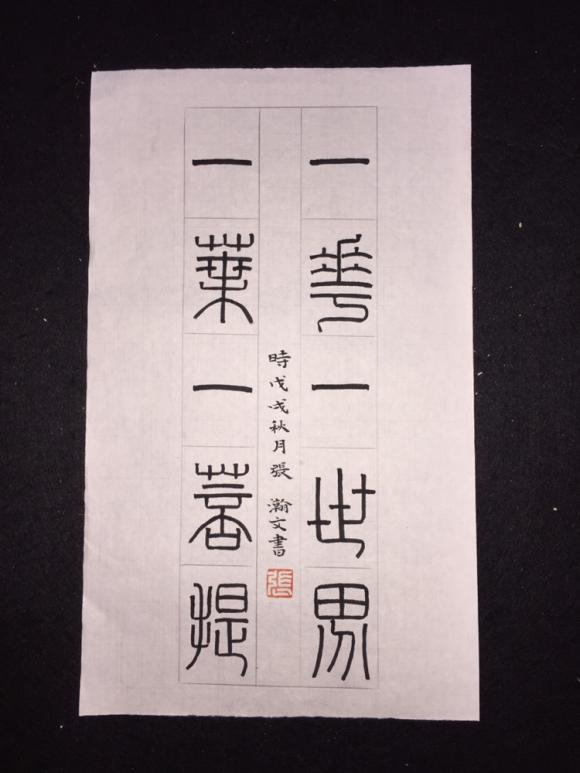 一花一世界
一葉一菩提
時戊戌秋月張瀚文書
張